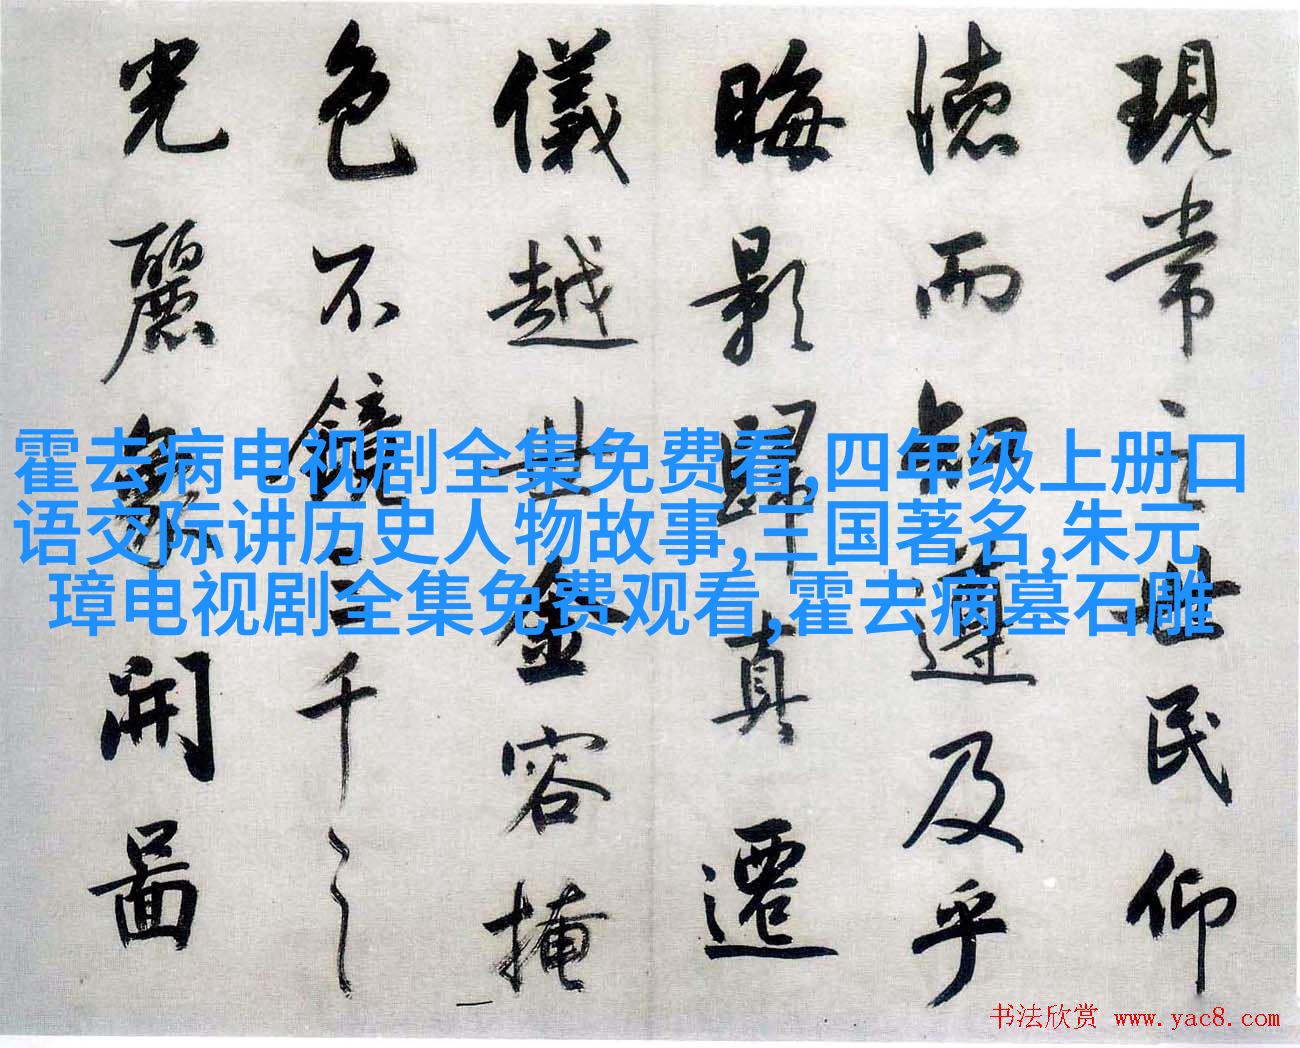 現常之世民仰
德而知遵及乎
晦影歸真遷
儀越世金容掩
色不鏡三千之
光麗象開圖
霍去病电视剧全集免费看,四年级上册口
语交际讲历史人物故事,三国著名,朱元
璋电视剧全集免费观看,霍去病墓石雕
书法欣赏 www.yac8.com